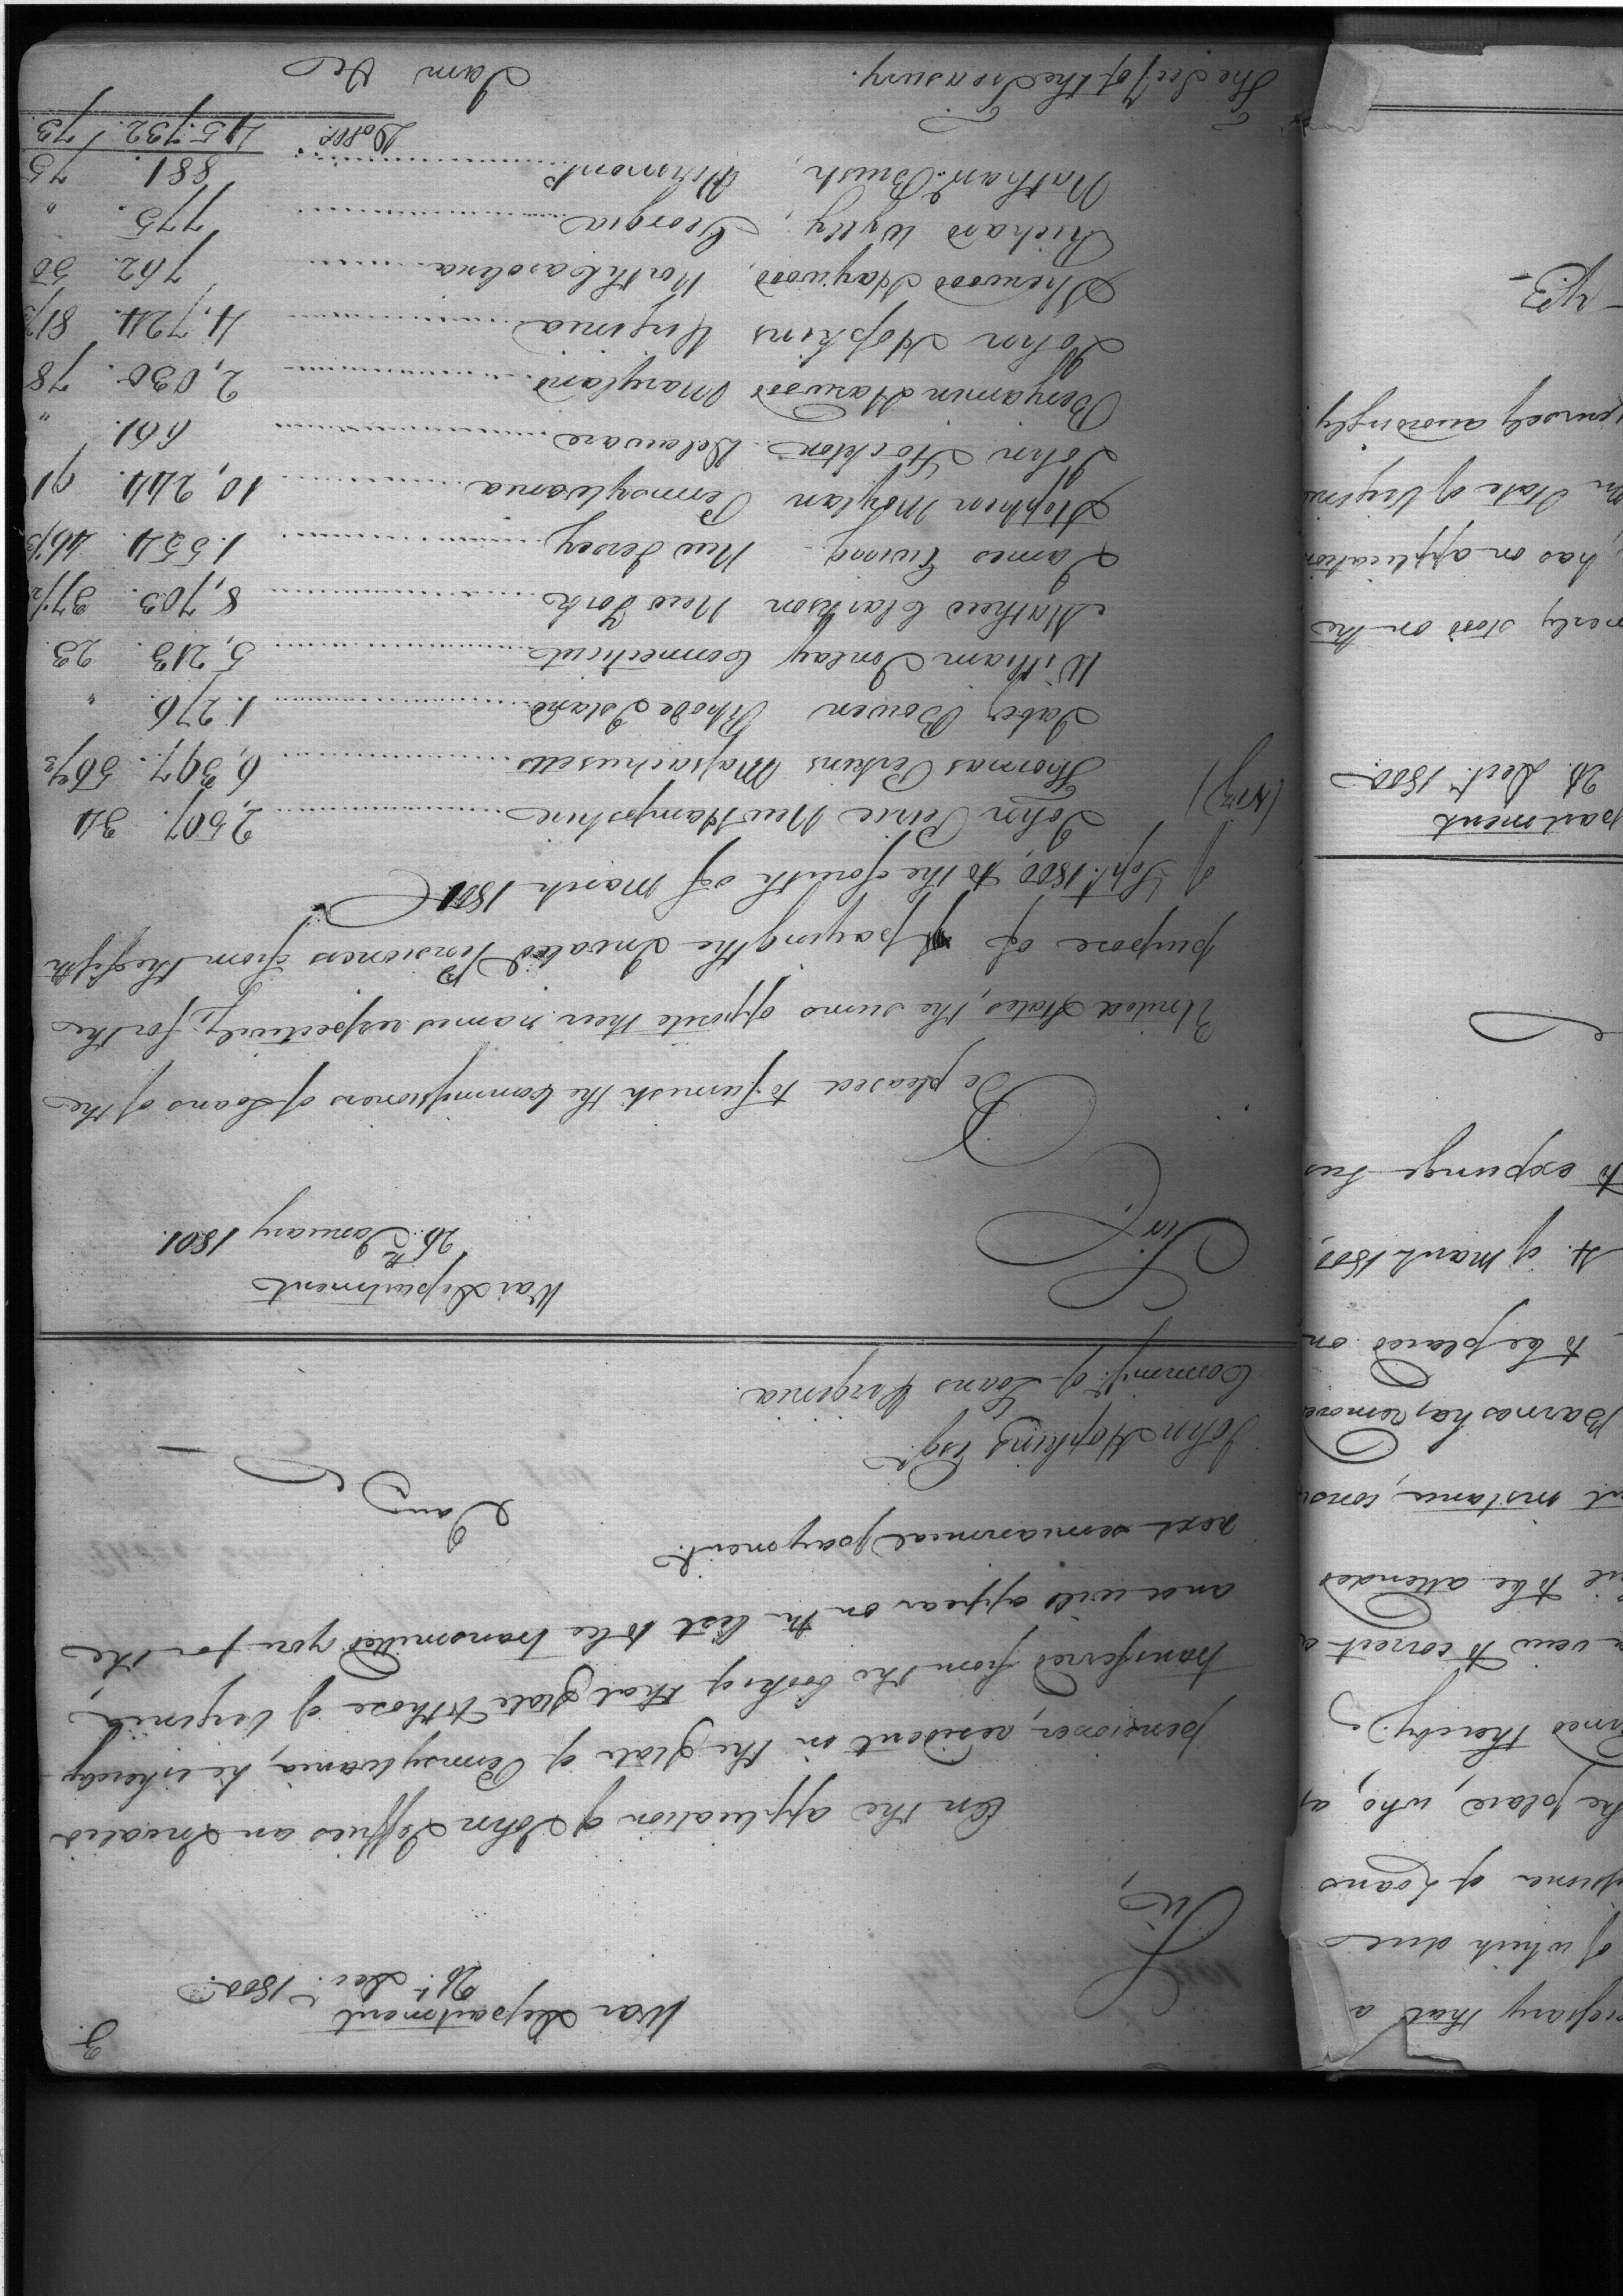 3.
War Department
26.t Dec.r 1800.
Sir,
On the application of John Jeffries an Invalid
pensioner, resident in the State of Pennsylvania, he is hereby
transferred from the books of that State to those of Virginia,
and will appear on the list to be transmitted you for the
next semiannual payment.
I am &c
John Hopkins Esq.r
Commiss.r of Loans Virginia.
War Department
26.th January 1801.
Sir,
Be pleased to furnish the Commissioners of Loans of the
United States, the sums opposite their names respectively, for the
purpose of paying the Invalid Pensioners from the fifth
of Sept.r 1800, to the fourth of March 1801
(Viz) John Peirce New Hampshire 2,507. 34
Thomas Perkins Massachusetts 6,397. 56 2/3
Jabez Bowen Rhode Island 1.276. "
William Imlay Connecticut 5,213 23
Mathew Clarkson New York 8,703. 37 1/2
James Ewing New Jersey 1.554. 46 1/3
Stephen Moylan Pennsylvania 10,244. 91
John Stockton Delaware 661. "
Benjamin Harwood Maryland 2,030. 78
John Hopkins Virginia 4,724. 81 1/3
Sherwood Haywood, North Carolina 762. 50
Richard Wylly, Georgia 775. "
Nathan.l Brush, Vermont 881. 75
Dollrs. 45.732. 73
The Sec.y of the Treasury. I am &c
ecessary that a
of which dues
issioner of Loans
he place, who, as
rned thereby.
view to correct a
il to be attended
nt instance,
Barnes has removed
to be placed on
4. of March 1800,
to expunge his
partment
24. Dec.r 1800
merly stood on the
has on application
State of Virginia
yourself accordingly